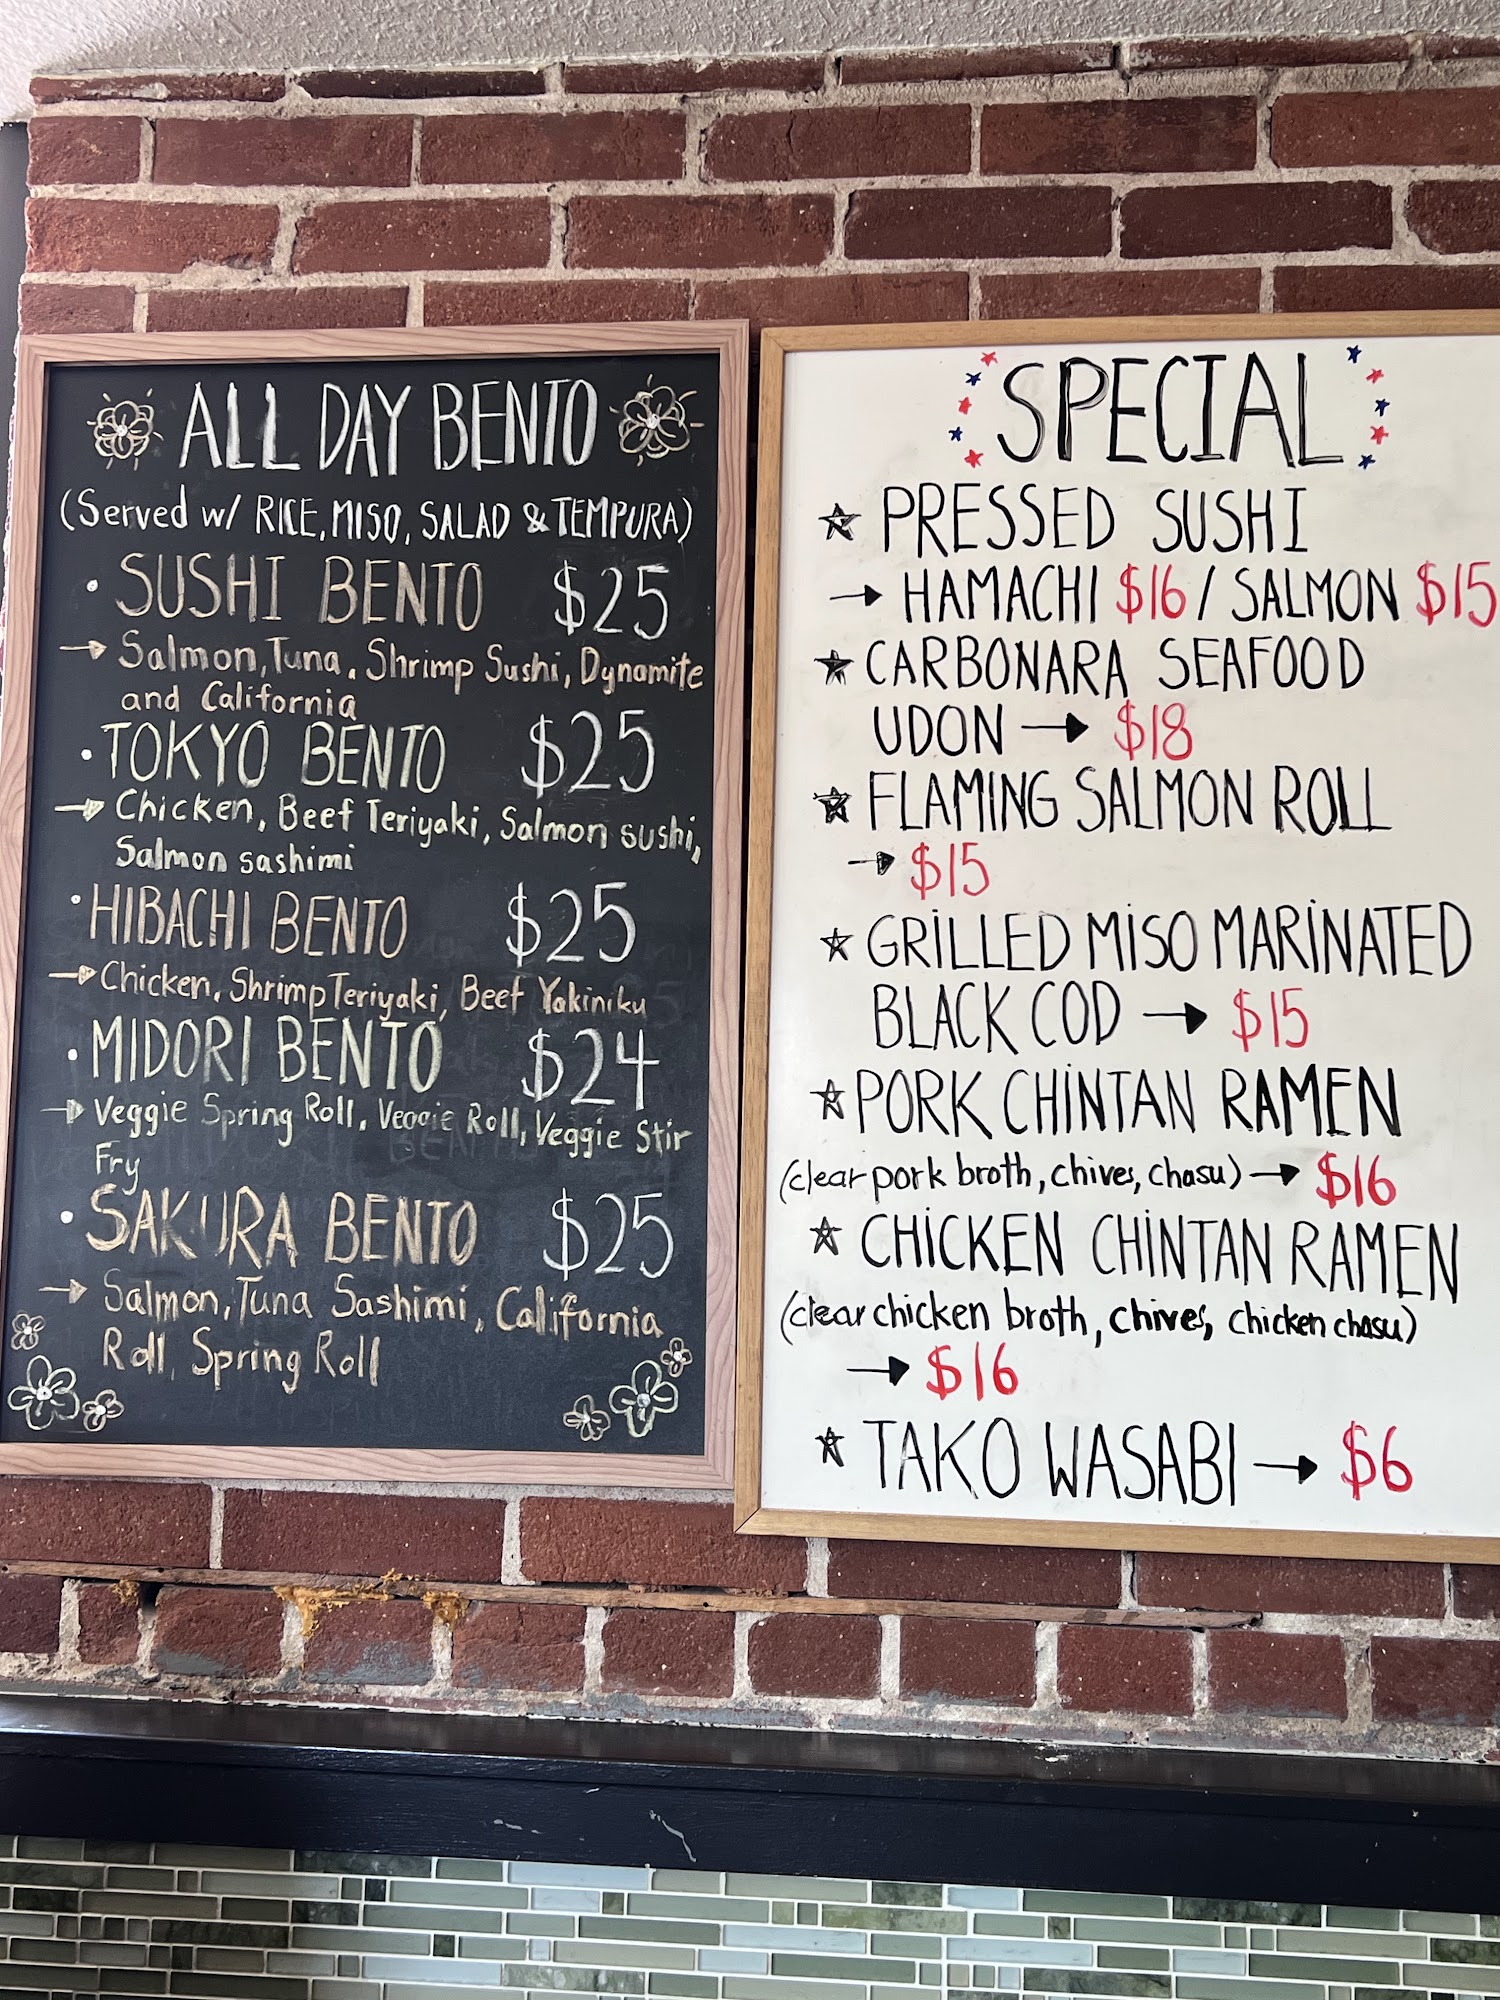 ALL DAY BENTO
(Served w/ RICE, MISO, SALAD & TEMPURA)
• SUSHI BENTO $25
→ Salmon, Tuna, Shrimp Sushi, Dynamite
and California
• TOKYO BENTO $25
→ Chicken, Beef Teriyaki, Salmon sushi,
Salmon sashimi
• HIBACHI BENTO $25
→ Chicken, Shrimp Teriyaki, Beef Yakiniku
• MIDORI BENTO $24
→ Veggie Spring Roll, Veggie Roll, Veggie Stir
Fry
• SAKURA BENTO $25
→ Salmon, Tuna Sashimi, California
Roll, Spring Roll
SPECIAL
★ PRESSED SUSHI
→ HAMACHI $16 / SALMON $15
★ CARBONARA SEAFOOD
UDON → $18
★ FLAMING SALMON ROLL
→ $15
★ GRILLED MISO MARINATED
BLACK COD → $15
★ PORK CHINTAN RAMEN
(clear pork broth, chives, chasu) → $16
★ CHICKEN CHINTAN RAMEN
(clear chicken broth, chives, chicken chasu)
→ $16
★ TAKO WASABI → $6